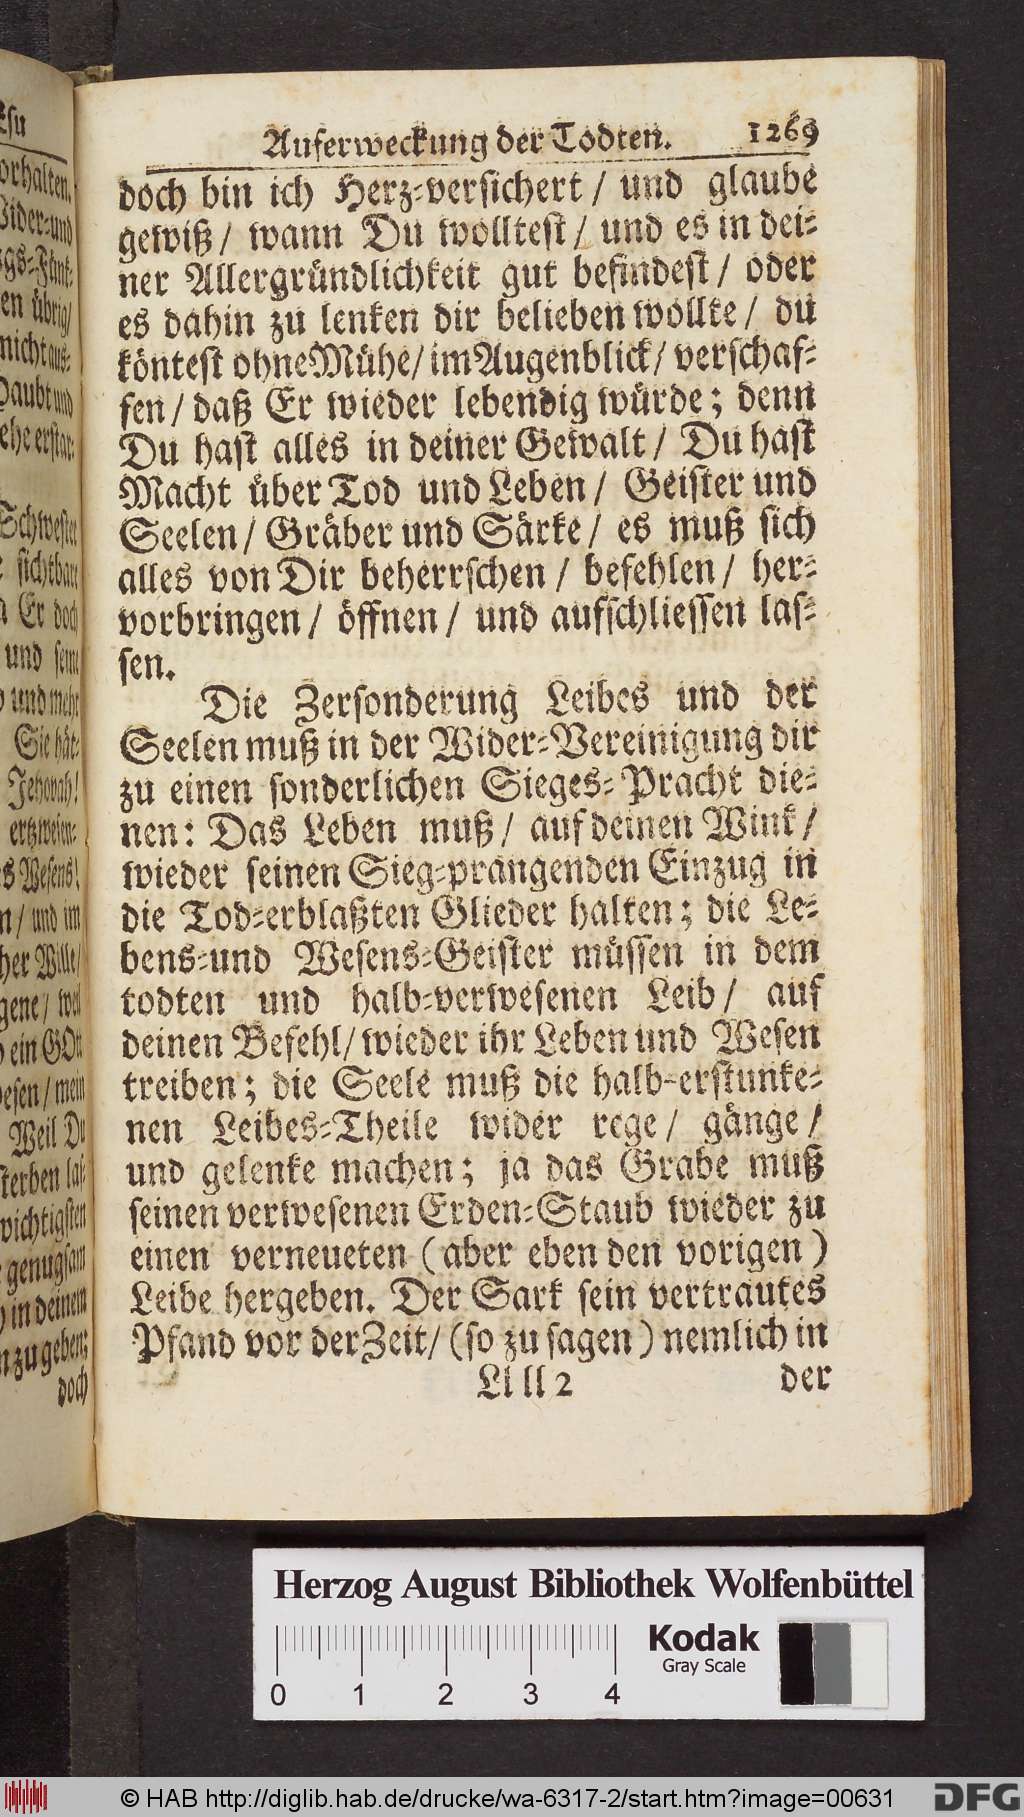 Auferweckung der Todten. 1269
doch bin ich Herz-versichert / und glaube
gewiß / wann Du wolltest / und es in dei-
ner Allergründlichkeit gut befindest / oder
es dahin zu lenken dir belieben wollte / du
köntest ohne Mühe / im Augenblick / verschaf-
fen / daß Er wieder lebendig würde; denn
Du hast alles in deiner Gewalt / Du hast
Macht über Tod und Leben / Geister und
Seelen / Gräber und Särke / es muß sich
alles von Dir beherrschen / befehlen / her-
vorbringen / öffnen / und aufschliessen las-
sen.
Die Zersonderung Leibes und der
Seelen muß in der Wider-Vereinigung dir
zu einen sonderlichen Sieges-Pracht die-
nen: Das Leben muß / auf deinen Wink /
wieder seinen Sieg-prangenden Einzug in
die Tod-erblaßten Glieder halten; die Le-
bens-und Wesens-Geister müssen in dem
todten und halb-verwesenen Leib / auf
deinen Befehl / wieder ihr Leben und Wesen
treiben; die Seele muß die halb-erstunke-
nen Leibes-Theile wider rege / gänge /
und gelenke machen; ja das Grabe muß
seinen verwesenen Erden-Staub wieder zu
einen verneueten (aber eben den vorigen)
Leibe hergeben. Der Sark sein vertrautes
Pfand vor der Zeit / (so zu sagen) nemlich in
Ll ll 2 der
orhalten.
en übrig /
nicht aus-
ehe erstar-
Schwester
sichtbare
Er doch
und seine
und mehr
Sie hät-
Jehovah!
Wesens!
/ und im
her Wille /
gene / weil
ein GOtt
esen / mein
Weil Du
sterben las-
wichtigsten
genugsam
in deinem
zu geben;
doch
Herzog August Bibliothek Wolfenbüttel
Kodak
Gray Scale
0 1 2 3 4
© HAB http://diglib.hab.de/drucke/wa-6317-2/start.htm?image=00631
DFG